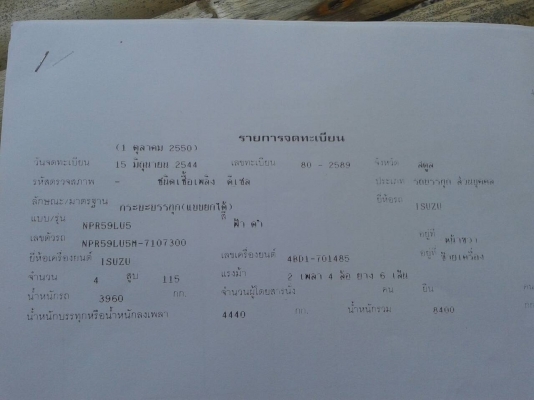 รายการจดทะเบียน
(1 ตุลาคม 2550)
วันจดทะเบียน 15 มิถุนายน 2544 เลขทะเบียน 80 - 2589 จังหวัด สตูล
รหัสตรวจสภาพ - ชนิดเชื้อเพลิง ดีเซล ประเภท รถบรรทุก ส่วนบุคคล
ลักษณะ/มาตรฐาน กระบะบรรทุก(แบบยกได้) ยี่ห้อรถ ISUZU
แบบ/รุ่น NPR59LU5 สี ฟ้า ดำ
เลขตัวรถ NPR59LU5M-7107300 อยู่ที่
ยี่ห้อเครื่องยนต์ ISUZU เลขเครื่องยนต์ 4BD1-701485 อยู่ที่ ซ้ายเครื่อง
จำนวน 4 สูบ 115 แรงม้า 2 เพลา 4 ล้อ ยาง 6 เส้น
น้ำหนักรถ 3960 กก. จำนวนผู้โดยสารนั่ง คน ยืน คน
น้ำหนักบรรทุกหรือน้ำหนักลงเพลา 4440 กก. น้ำหนักรวม 8400